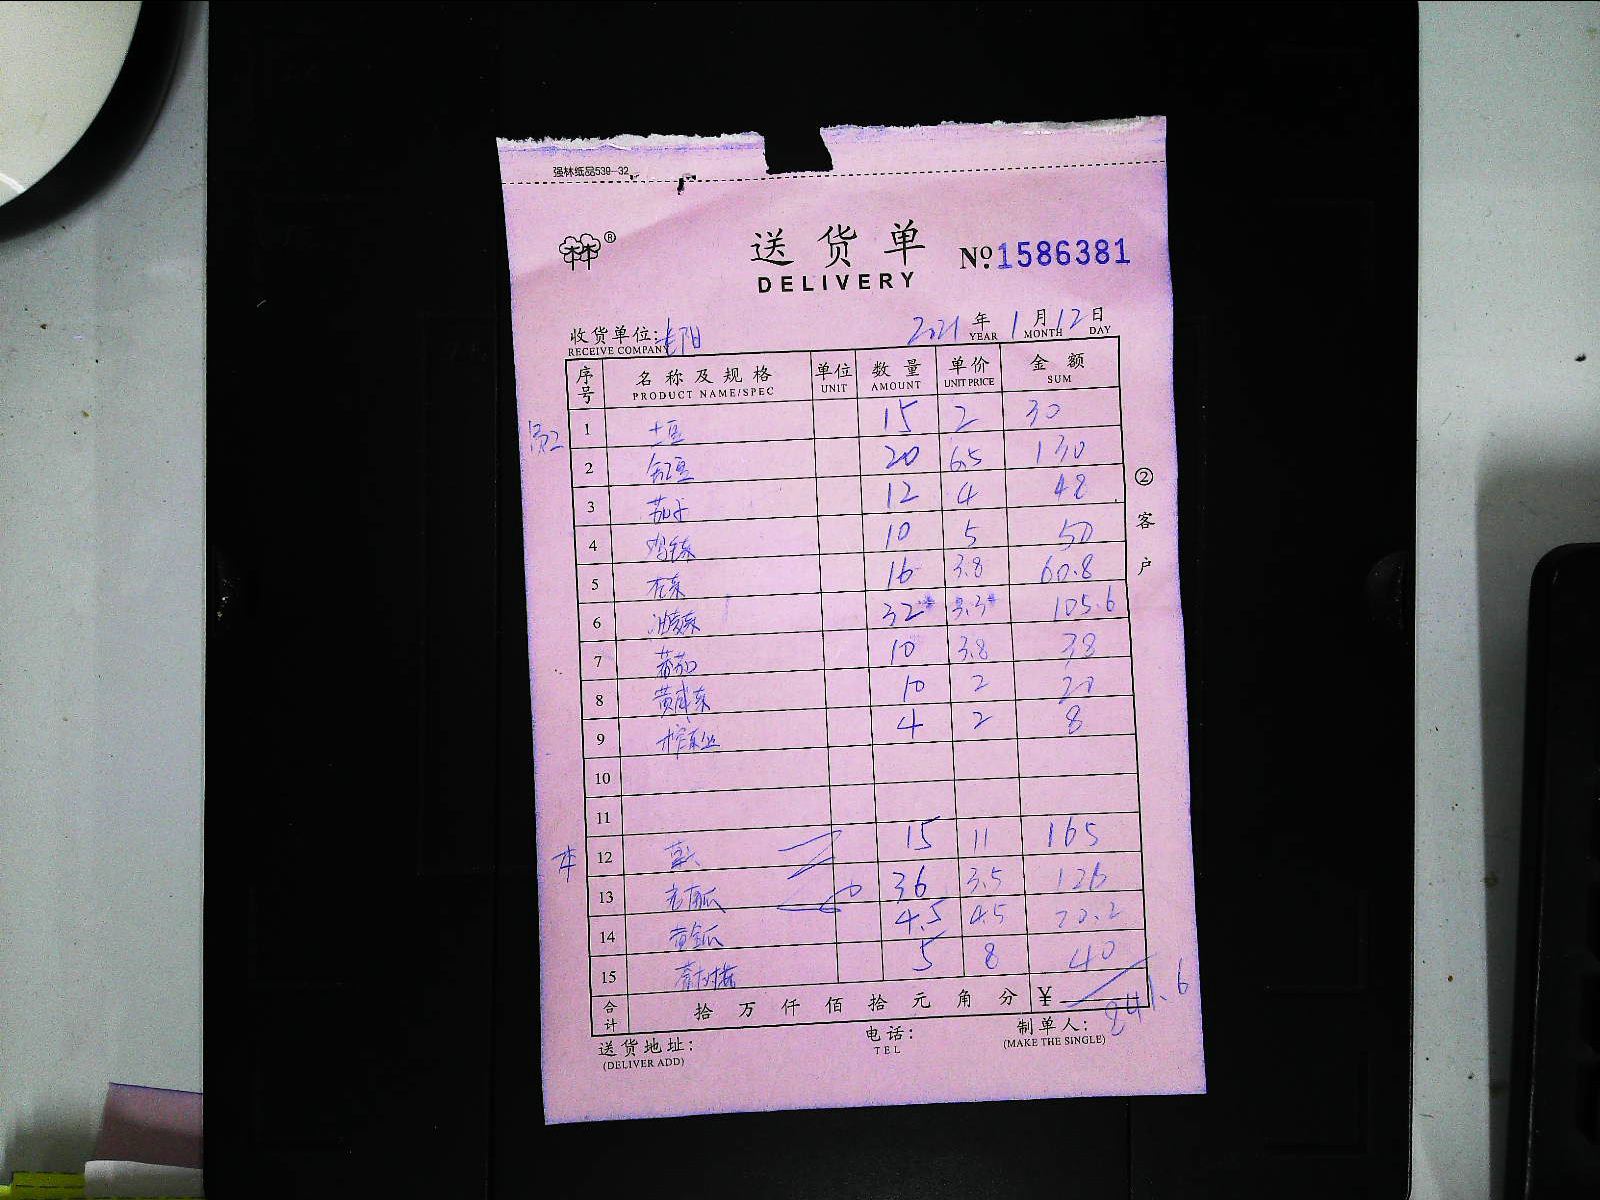 强林纸品539-32
送货单 №1586381
DELIVERY
收货单位: 阳 2021年1月12日
RECEIVE COMPANY YEAR MONTH DAY
序号 名称及规格 单位 数量 单价 金额
PRODUCT NAME/SPEC UNIT AMOUNT UNIT PRICE SUM
员工 1 土豆 15 2 30
2 豆 20 6.5 130
3 茄子 12 4 48
4 10 5 50
5 16 3.8 60.8
6 油麦菜 32 3.3 105.6
7 番茄 10 3.8 38
8 黄咸菜 10 2 20
9 4 2 8
10
11
12 15 11 165
13 老南瓜 36 3.5 126
14 黄金瓜 4.5 4.5 20.2
15 5 8 40
合计 拾万仟佰拾元角分 ¥ 841.6
送货地址: 电话: 制单人:
(DELIVER ADD) TEL (MAKE THE SINGLE)
② 客户